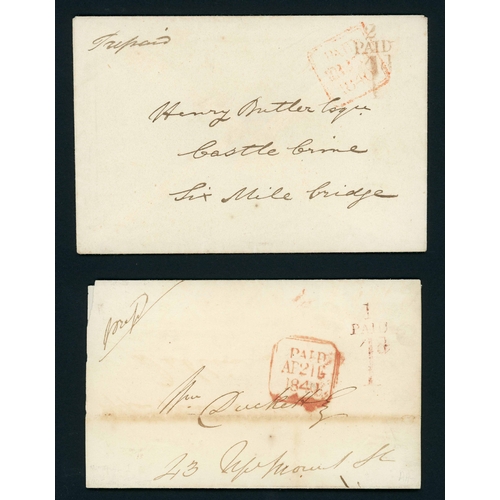 Prepaid
2
PAID
1d
Henry Butler Esqr
Castle Crine
Six Mile bridge
1
PAID
PAID
AP 21
184
Wm Duckett Esq
43 Mount St